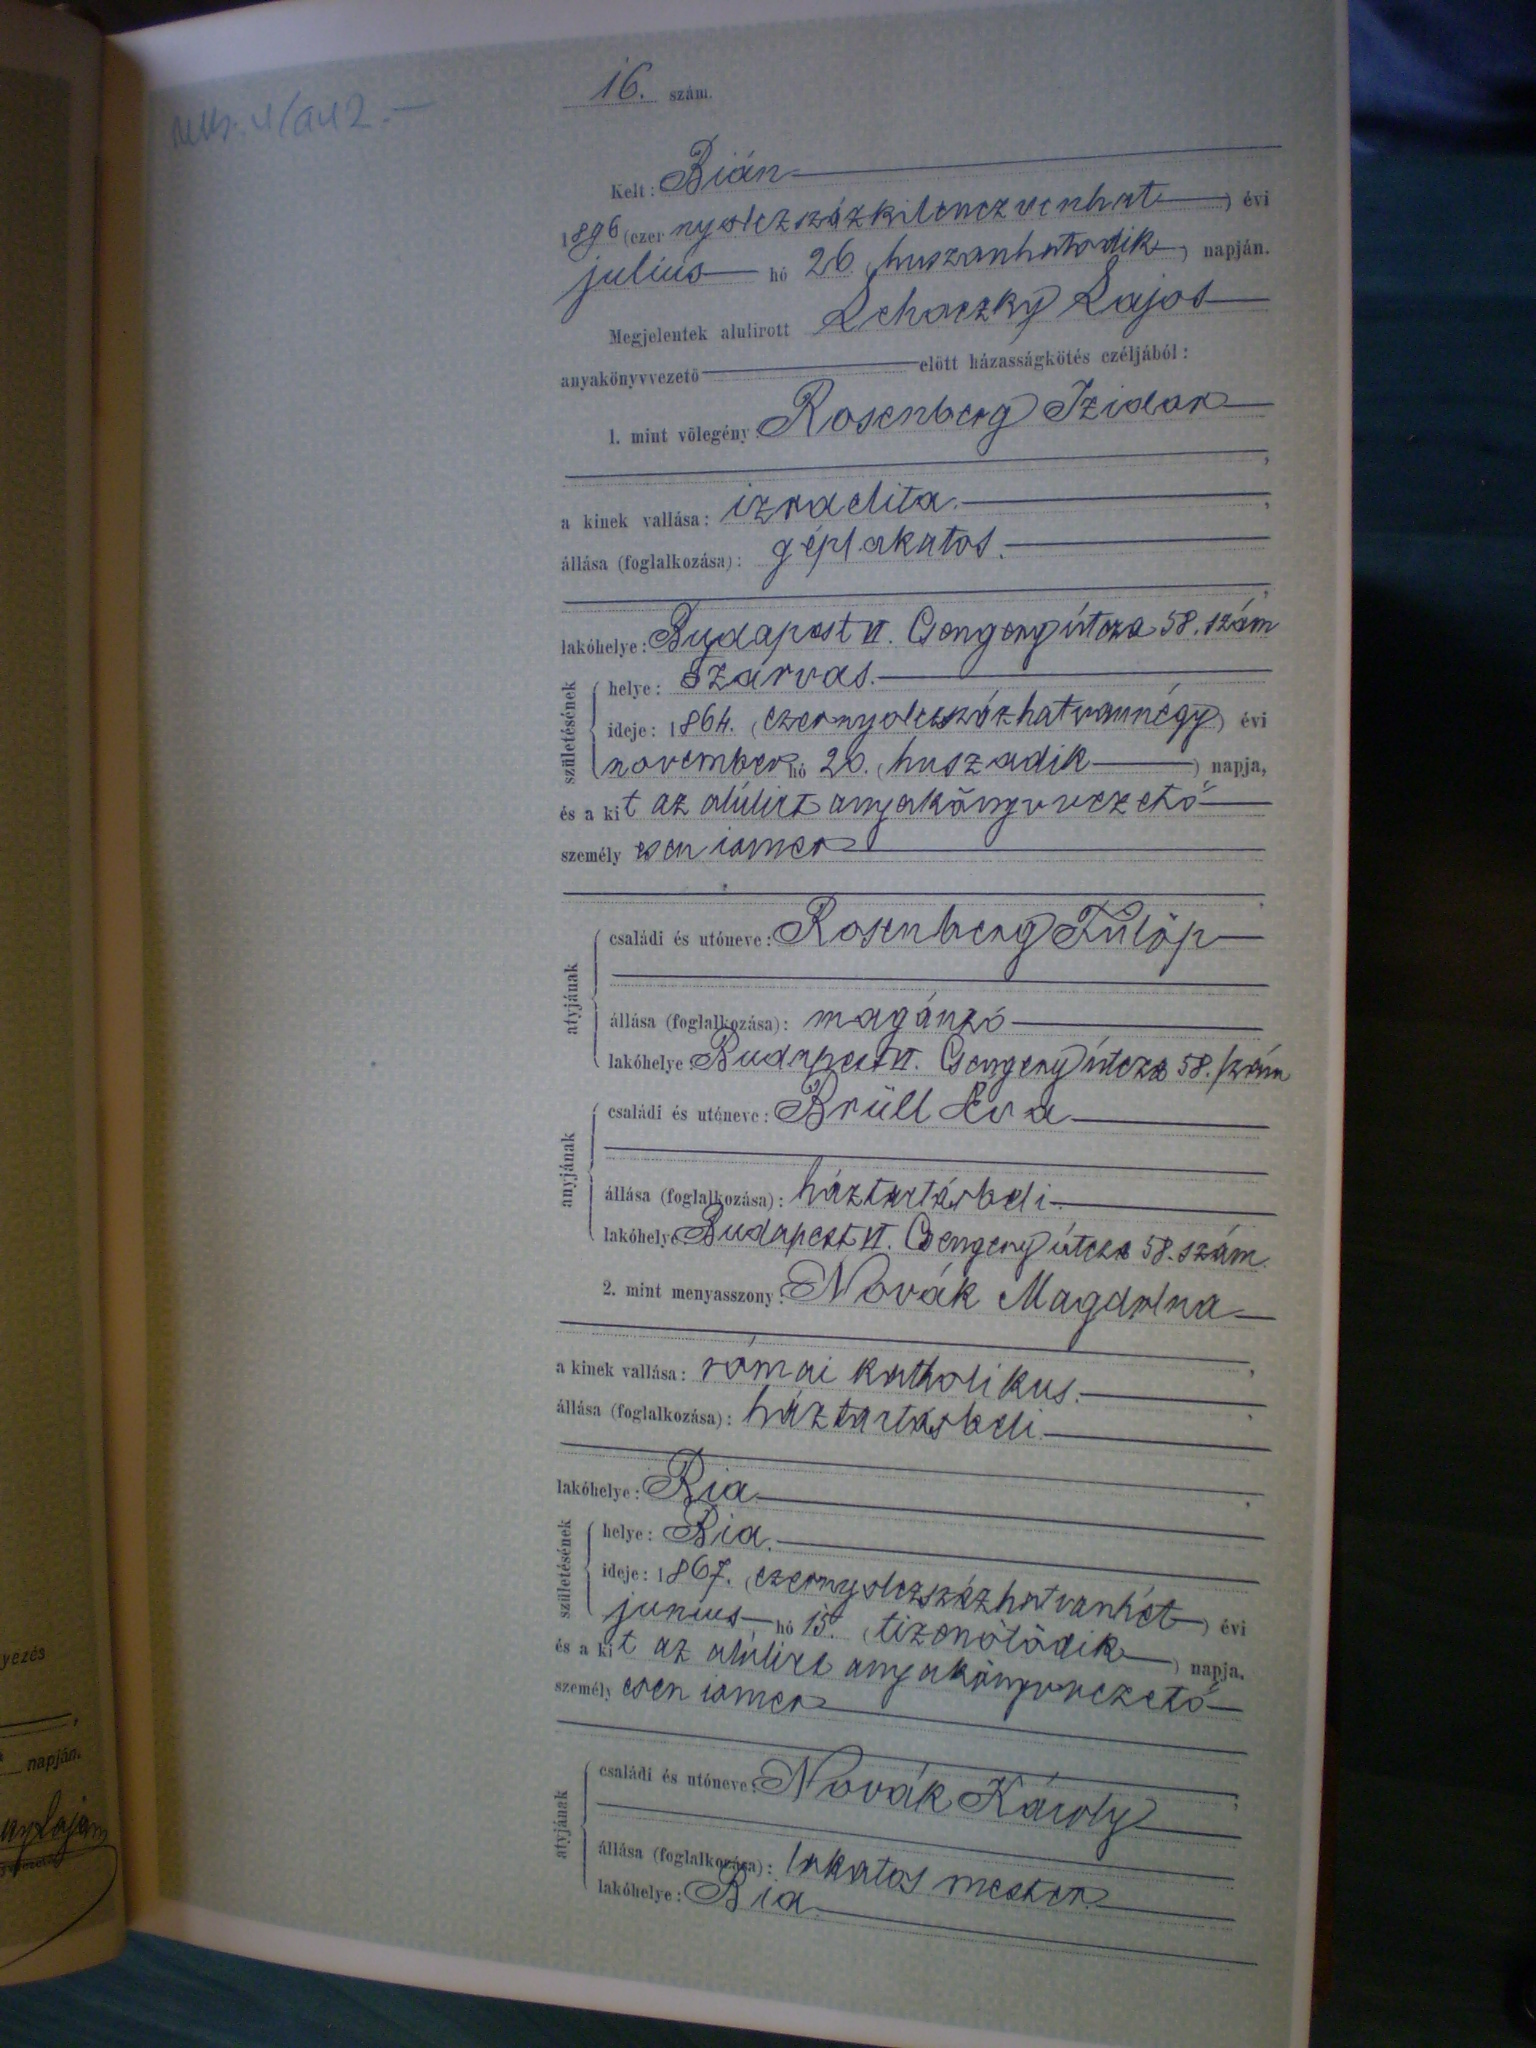 16. szám.
Kelt: Bián
1896 (ezer nyolczszázkilenczvenhat) évi
julius hó 26 (huszonhatodik) napján.
Megjelentek alulirott Lehoczky Lajos
anyakönyvvezető előtt házasságkötés czéljából:
1. mint vőlegény: Rosenberg Izidor
a kinek vallása: izraelita.
állása (foglalkozása): géplakatos.
lakóhelye: Budapest VI. Csengery útcza 58. szám
születésének
helye: Szarvas.
ideje: 1864. (ezernyolczszázhatvannégy) évi
november hó 20. (huszadik) napja,
és a kit az alúlirt anyakönyvvezető
személy esen ismer
atyjának
családi és utóneve: Rosenberg Fülöp
állása (foglalkozása): magánzó
lakóhelye: Budapest VI. Csengery útcza 58. szám
anyjának
családi és utóneve: Brüll Éva
állása (foglalkozása): háztartásbeli
lakóhelye: Budapest VI. Csengery útcza 58. szám.
2. mint menyasszony: Novák Magdolna
a kinek vallása: római katholikus.
állása (foglalkozása): háztartásbeli
lakóhelye: Bia
születésének
helye: Bia.
ideje: 1867. (ezernyolczszázhatvanhét) évi
junius hó 15. (tizenötödik) napja,
és a kit az alúlirt anyakönyvvezető
személy esen ismer
atyjának
családi és utóneve: Novák Károly
állása (foglalkozása): lakatos mester
lakóhelye: Bia
yezés
napján.